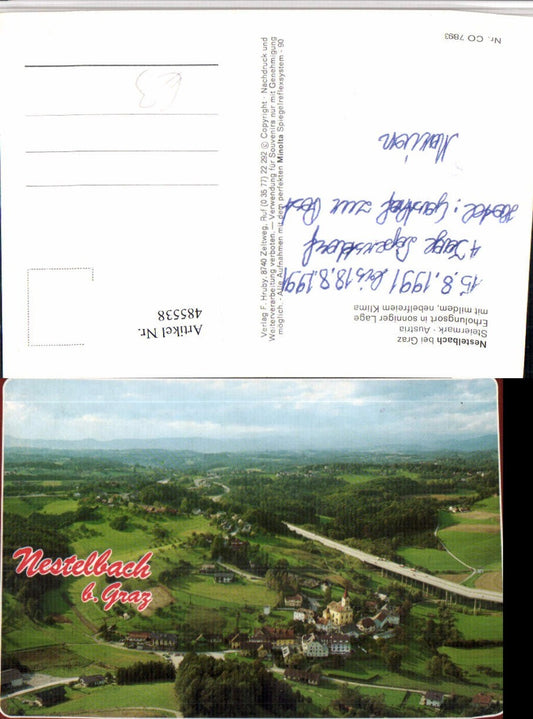 Nestelbach bei Graz
Steiermark · Austria
Erholungsort in sonniger Lage
mit mildem, nebelfreiem Klima
15.8.1991 bis 18.8.1991
4 Tage
Hotel: Gasthof zur Post
Nr. CO 7893
Verlag F. Hruby, 8740 Zeltweg, Ruf (0 35 77) 22 292 © Copyright · Nachdruck und
Weiterverarbeitung verboten. — Verwendung für Souvenirs nur mit Genehmigung
möglich. - Alle Aufnahmen mit dem perfekten Minolta Spiegelreflexsystem - 90
Artikel Nr.
485538
Nestelbach
b. Graz